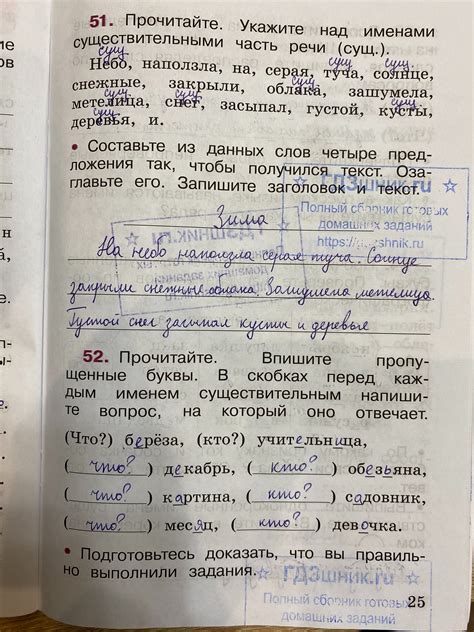 51. Прочитайте. Укажите над именами
существительными часть речи (сущ.).
сущ. сущ. сущ.
Небо, наползла, на, серая, туча, солнце,
сущ.
снежные, закрыли, облака, зашумела,
сущ. сущ. сущ.
метелица, снег, засыпал, густой, кусты,
сущ.
деревья, и.
• Составьте из данных слов четыре пред-
ложения так, чтобы получился текст. Оза-
главьте его. Запишите заголовок и текст.
☆ ГДЗшник.ru ☆
Полный сборник готовых
домашних заданий
Зима
На небо наползла серая туча. Солнце
закрыли снежные облака. Зашумела метелица.
Густой снег засыпал кусты и деревья
52. Прочитайте. Впишите пропу-
щенные буквы. В скобках перед каж-
дым именем существительным напиши-
те вопрос, на который оно отвечает.
(Что?) берёза, (кто?) учительница,
( что? ) декабрь, ( кто? ) обезьяна,
( что? ) картина, ( кто? ) садовник,
( что? ) месяц, ( кто? ) девочка.
• Подготовьтесь доказать, что вы правиль-
но выполнили задания.
☆ ГДЗшник.ru ☆
25
Полный сборник готовых
домашних заданий